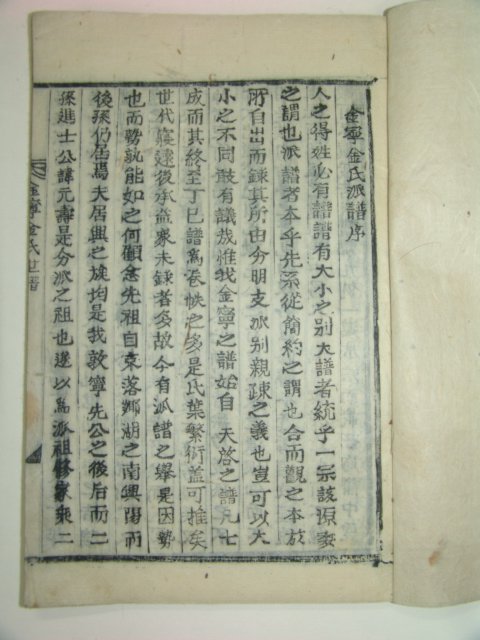 金寧金氏派譜序
人之得姓必有譜譜有大小之别大譜者統乎一宗該源委
之謂也派譜者本乎先系從簡約之謂也合而觀之本於
所自出而錄其所由分明支派别親疎之義也豈可以大
小之不同敢有議哉惟我金寧之譜始自 天啓之譜凡七
成而其終至丁巳譜爲卷帙之多是氏葉繁衍盖可推矣
世代寢遠後承益衆未錄者多故今有派譜之舉是因勢
也而勢孰能如之何顧念先祖自京落鄉湖之南興陽而
後孫仍居焉夫居興之族均是我敦寧先公之後后而二
孫進士公諱元壽是分派之祖也遂以爲派祖修家乘二
金寧金氏世譜